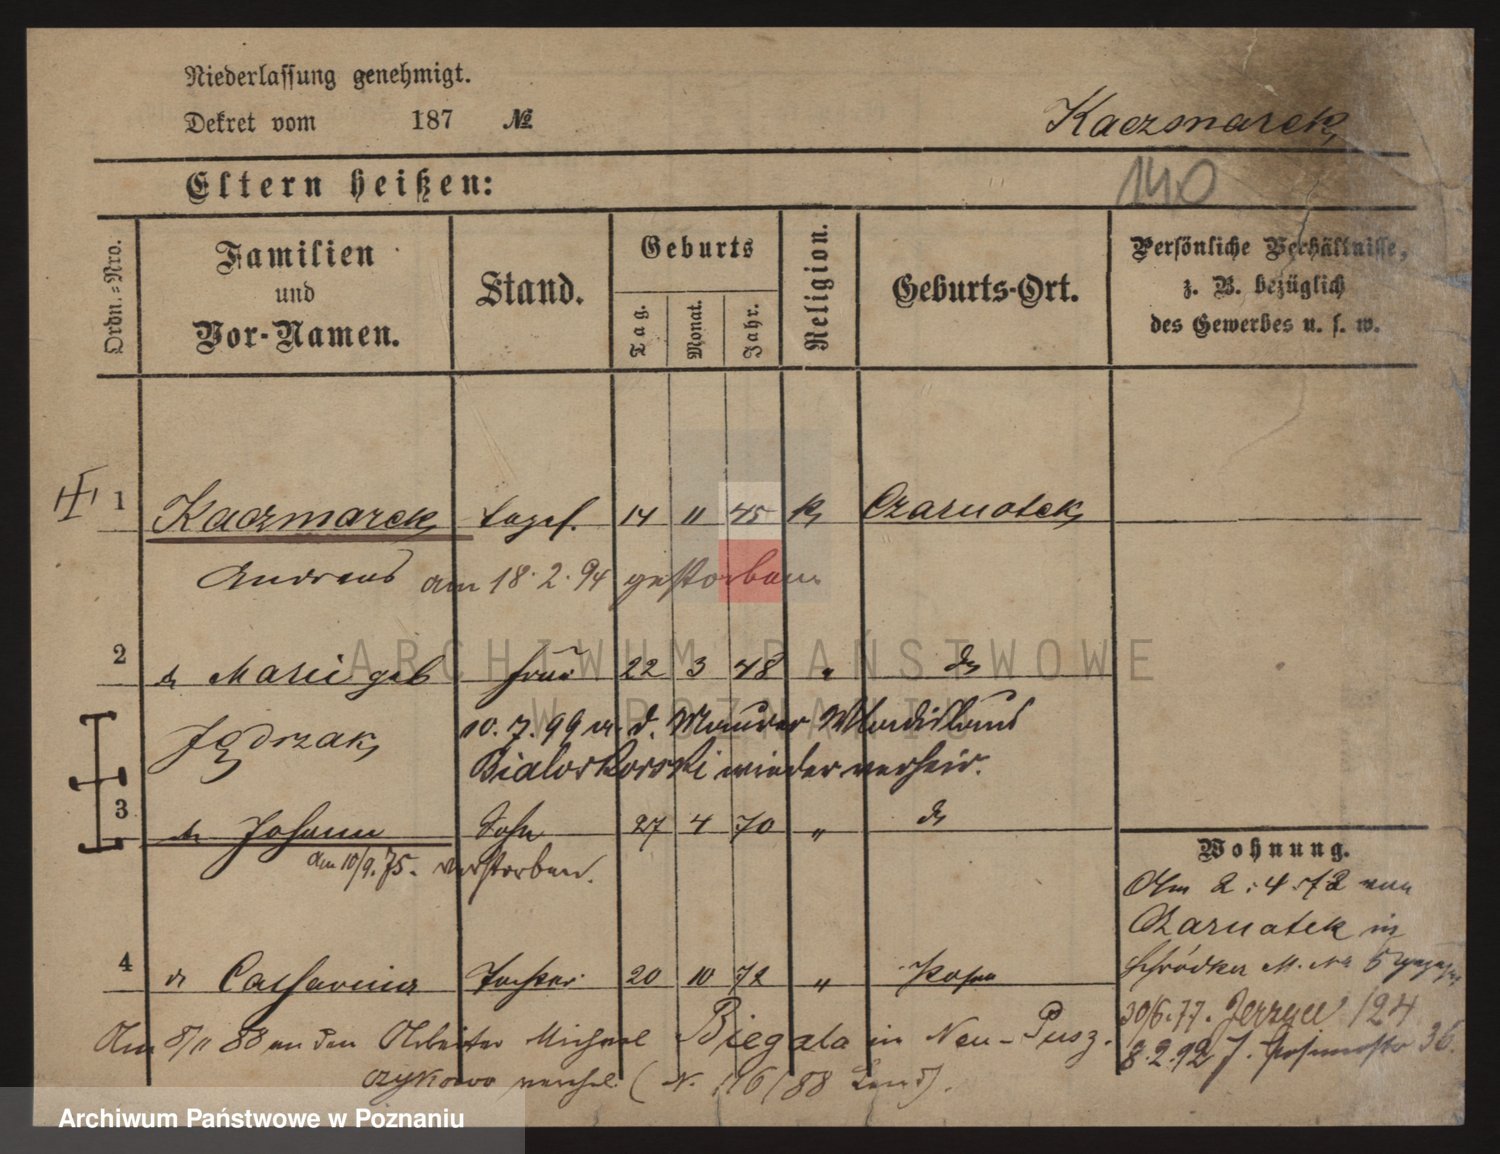 Niederlassung genehmigt.
Dekret vom 187 №
Kaczmarek
140
Eltern heißen:
Ordn.-Nro.
Familien
und
Vor-Namen.
Stand.
Geburts
Tag.
Monat.
Jahr.
Religion.
Geburts-Ort.
Persönliche Verhältnisse,
z. B. bezüglich
des Gewerbes u. s. w.
1 Kaczmarek 14 " 45 k Czarnotek
Andreas am 18.2.94 gestorben.
2 Marie geb Frau 22 3 48 " do
Jędrzak
10.7.99 m. d. Maurer Wladislaus
Bialoskorski wieder verheir.
3 Johann Sohn 27 4 70 " do
am 10/9.75. verstorben.
4 Catharina Tochter 20 10 72 " Posen
Am 8/11 88 an den Arbeiter Michael Biegala in Neu-Pusz-
czykowo verehel. (N. 116/88 Land).
Wohnung.
Am 2.4.72 von
Czarnotek in
Schrodka M. No 5
30/6.77. Jerzyce 124
8.2.92 J. 36.
ARCHIWUM PAŃSTWOWE
W POZNANIU
Archiwum Państwowe w Poznaniu